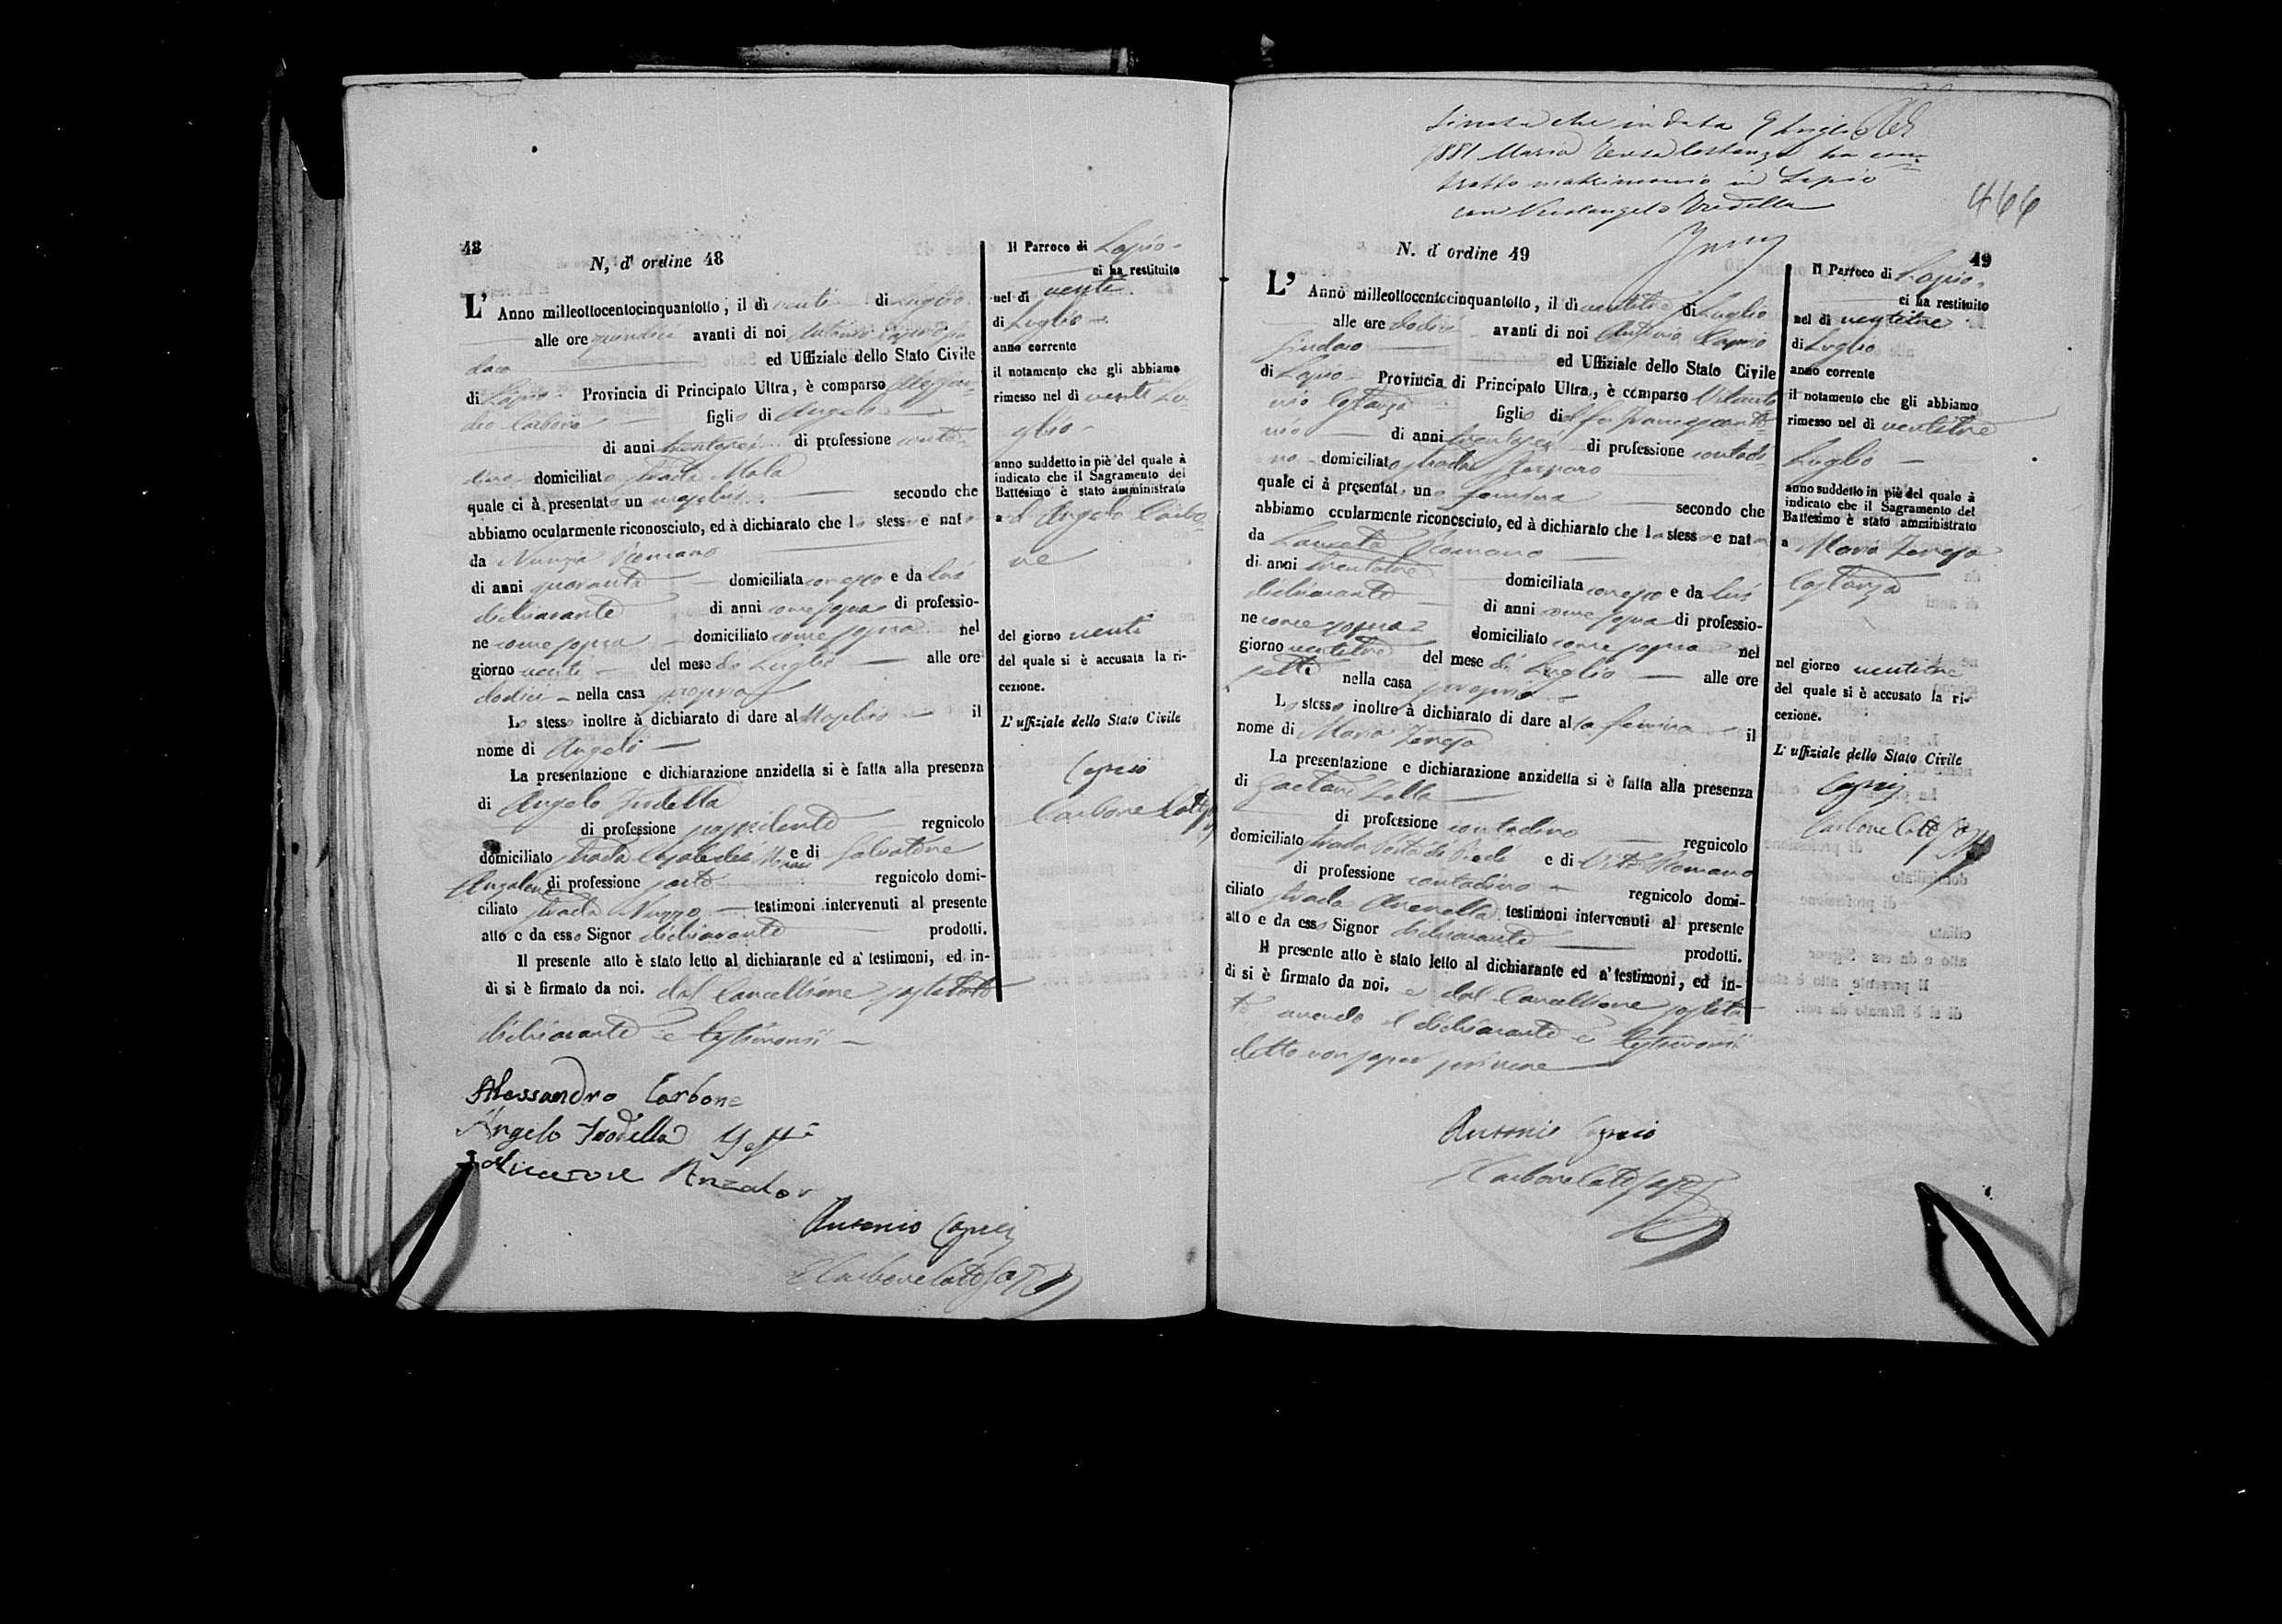 48
N, d' ordine 48
L' Anno milleottocentocinquantotto, il dì venti di Luglio
alle ore quindici avanti di noi Antonio Caprio Sin-
daco ed Uffiziale dello Stato Civile
di Lapio Provincia di Principato Ultra, è comparso Alessan-
dro Carbone figlio di Angelo
di anni trentasei di professione conta-
dino domiciliato strada Mala
quale ci à presentato un maschio secondo che
abbiamo ocularmente riconosciuto, ed à dichiarato che lo stesso e nato
da Nunzia Romano
di anni quaranta domiciliata con esso e da lui
dichiarante di anni come sopra di professio-
ne come sopra domiciliato come sopra nel
giorno venti del mese di Luglio alle ore
dodici nella casa propria
Lo stesso inoltre à dichiarato di dare al Maschio il
nome di Angelo
La presentazione e dichiarazione anzidetta si è fatta alla presenza
di Angelo
di professione possidente regnicolo
domiciliato strada e di Salvatore
Anzalone di professione sarto regnicolo domi-
ciliato strada testimoni intervenuti al presente
atto e da esso Signor dichiarante prodotti.
Il presente atto è stato letto al dichiarante ed a' testimoni, ed in-
di si è firmato da noi. dal Cancelliere sostituto
dichiarante e testimonii
Alessandro Carbone
Angelo
Salvatore
Antonio Caprio
Carbone
Il Parroco di Lapio
ci ha restituito
nel dì venti
di Luglio
anno corrente
il notamento che gli abbiamo
rimesso nel dì venti Lu-
glio
anno suddetto in piè del quale à
indicato che il Sagramento del
Battesimo è stato amministrato
a Angelo Carbo-
ne
del giorno venti
del quale si è accusata la ri-
cezione.
L' uffiziale dello Stato Civile
Caprio
Carbone
che in data 9 Luglio
1881 Maria Teresa Costanza ha con-
tratto matrimonio in Lapio
con
466
49
N. d' ordine 49
L' Anno milleottocentocinquantotto, il dì ventitre di Luglio
alle ore dodici avanti di noi Antonio Caprio
Sindaco ed Uffiziale dello Stato Civile
di Lapio Provincia di Principato Ultra, è comparso
Costanza figlio di
di anni di professione contadi-
no domiciliato strada
quale ci à presentat un a femina secondo che
abbiamo ocularmente riconosciuto, ed à dichiarato che la stessa e nata
da Romano
di anni trentatre domiciliata con esso e da lui
dichiarante di anni come sopra di professio-
ne come sopra domiciliato come sopra nel
giorno ventitre del mese di Luglio alle ore
sette nella casa propria
Lo stesso inoltre à dichiarato di dare al la femina il
nome di Maria Teresa
La presentazione e dichiarazione anzidetta si è fatta alla presenza
di Gaetano
di professione contadino regnicolo
domiciliato strada e di Vito Romano
di professione contadino regnicolo domi-
ciliato strada testimoni intervenuti al presente
atto e da esso Signor dichiarante prodotti.
Il presente atto è stato letto al dichiarante ed a' testimoni, ed in-
di si è firmato da noi. e dal Cancelliere sostitu-
to avendo il dichiarante e testimonii
detto non saper scrivere
Antonio Caprio
Carbone
Il Parroco di Lapio
ci ha restituito
nel dì ventitre
di Luglio
anno corrente
il notamento che gli abbiamo
rimesso nel dì ventitre
Luglio
anno suddetto in piè del quale à
indicato che il Sagramento del
Battesimo è stato amministrato
a Maria Teresa
Costanza
nel giorno ventitre
del quale si è accusato la ri-
cezione.
L' uffiziale dello Stato Civile
Caprio
Carbone